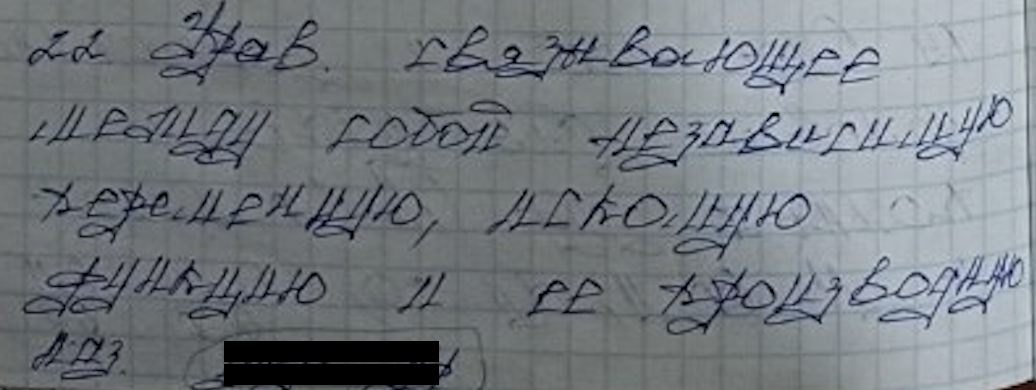 22 Урав. связывающее
между собой независимую
переменную, искомую
функцию и ее производную
наз.